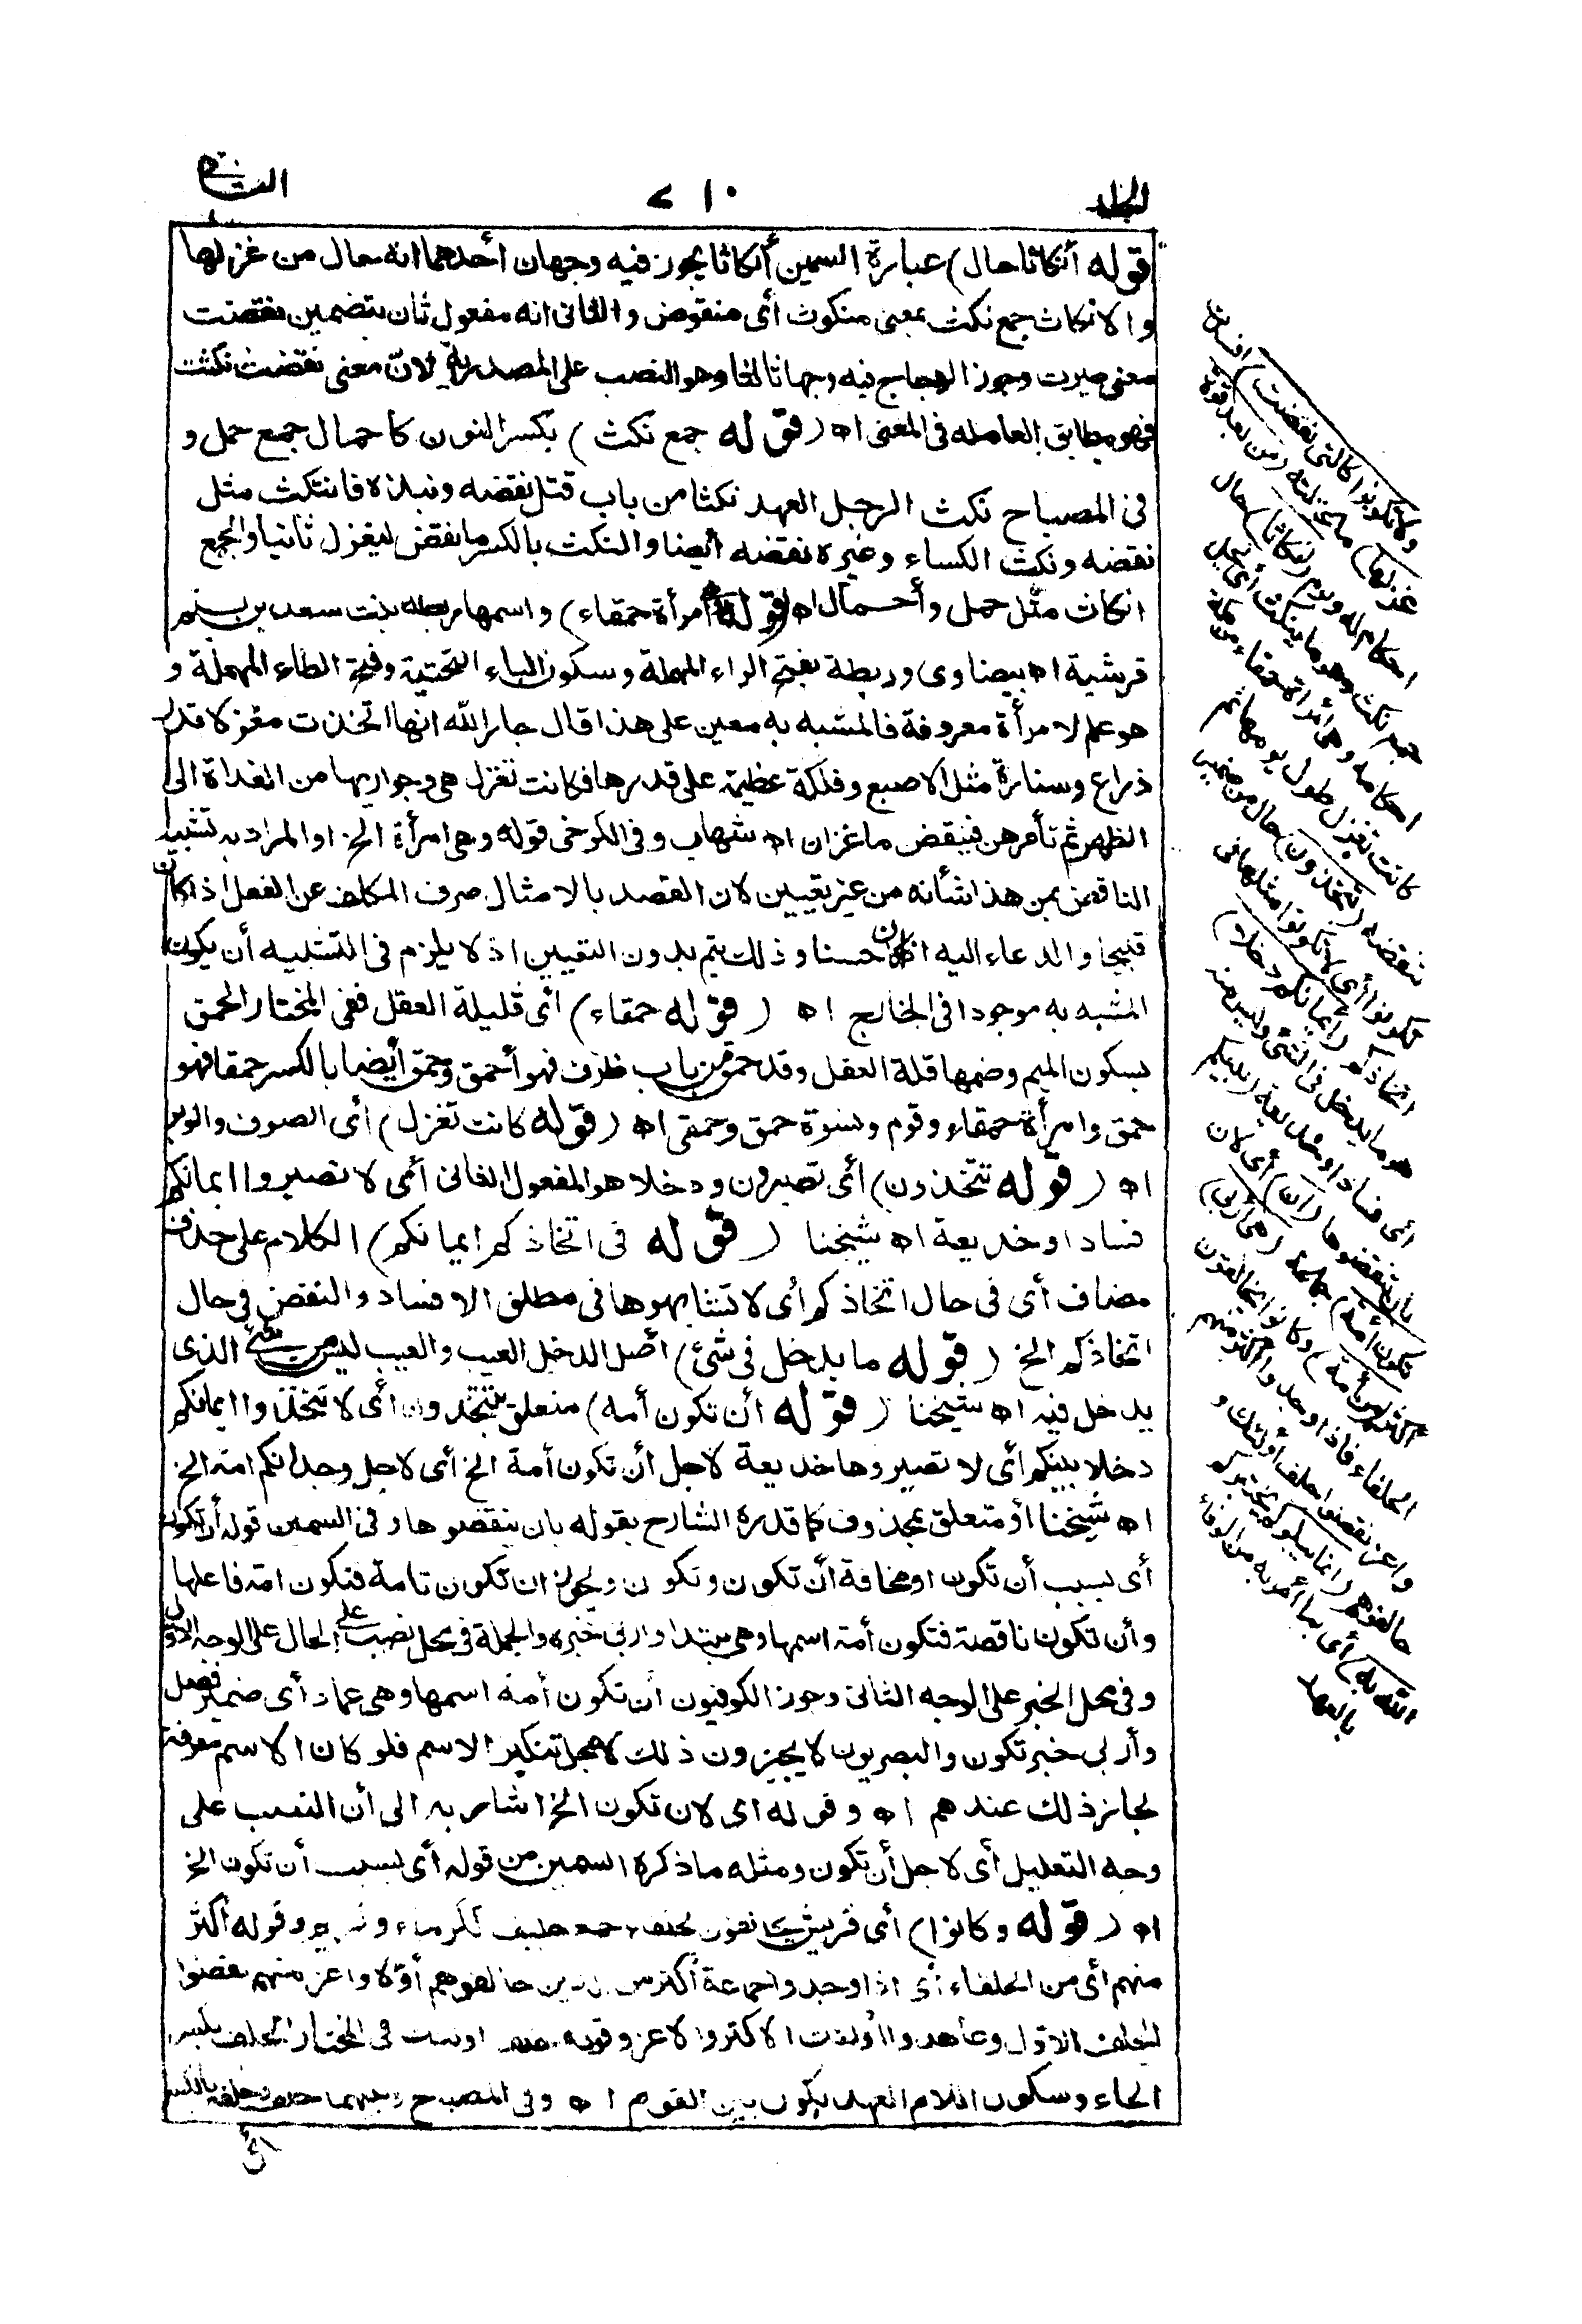 المجلد
٧١٠
الثانى
قوله أنكاثا حال) عبارة السمين أنكاثا يجوز فيه وجهان أحدهما انه حال من غزلها
والانكاث جمع نكث بمعنى منكوث أى منقوض والثانى انه مفعول ثان بتضمين نقضت
معنى صيرت وجوز الزجاج فيه وجها ثالثا وهو النصب على المصدرية لانّ معنى نقضت نكثت
فهو مطابق لعامله فى المعنى اه (قوله جمع نكث) بكسر النون كاحمال جمع حمل و
فى المصباح نكث الرجل العهد نكثا من باب قتل نقضه ونبذه فانتكث مثل
نقضه ونكث الكساء وغيره نقضه أيضا والنكث بالكسر ما نقض ليغزل ثانيا والجمع
انكاث مثل حمل وأحمال اه (قوله امرأة حمقاء) واسمها ريطة بنت سعد بن
قرشية اه بيضاوى وريطة بفتح الراء المهملة وسكون الياء التحتية وفتح الطاء المهملة و
هو علم لامرأة معروفة فالمشبه به معين على هذا قال جار الله انها اتخذت مغزلا قدر
ذراع وسنارة مثل الاصبع وفلكة عظيمة على قدرها فكانت تغزل هى وجواريها من الغداة الى
الظهر ثم تأمرهن فينقضن ما غزلن اه شهاب وفى الكرخى قوله وهى امرأة الخ او المراد به تشبيه
الناقض بمن هذا شأنه من غير تعيين لان القصد بالامثال صرف المكلف عن الفعل اذا كان
قبيحا والدعاء اليه اذا كان حسنا وذلك يتم بدون التعيين اذ لا يلزم فى التشبيه أن يكون
المشبه به موجودا فى الخارج اه (قوله حمقاء) أى قليلة العقل ففى المختار الحمق
بسكون الميم وضمها قلة العقل وقد حمق من باب ظرف فهو أحمق وحمق أيضا بالكسر حمقا فهو
حمق وامرأة حمقاء وقوم ونسوة حمق وحمقى اه (قوله كانت تغزل) أى الصوف والوبر
اه (قوله تتخذون) أى تصيرون ودخلا هو المفعول الثانى أى لا تصيروا ايمانكم
فسادا وخديعة اه شيخنا (قوله فى اتخاذكم ايمانكم) الكلام على حذف
مضاف أى فى حال اتخاذكم أى لا تشابهوها فى مطلق الافساد والنقض فى حال
اتخاذكم الخ (قوله ما يدخل فى شئ) أصل الدخل العيب والعيب ليس من شئ الذى
يدخل فيه اه شيخنا (قوله أن تكون أمه) متعلق بتتخذون أى لا تتخذوا ايمانكم
دخلا بينكم أى لا تصيروها خديعة لاجل أن تكون أمة الخ أى لاجل وجدانكم امة الخ
اه شيخنا أو متعلق بمحذوف كما قدره الشارح بقوله بان ينقضوها وفى السمين قوله أن تكون
أى بسبب أن تكون او مخافة أن تكون وتكون يجوز ان تكون تامة فتكون امة فاعلها
وأن تكون ناقصة فتكون أمة اسمها وهى مبتدا واربى خبره والجملة فى محل نصب على الحال على الوجه الاول
وفى محل الخبر على الوجه الثانى وجوز الكوفيون أن تكون أمة اسمها وهى عماد أى ضمير فصل
وأربى خبر تكون والبصريون لا يجيزون ذلك لاجل تنكير الاسم فلو كان الاسم معرفة
لجاز ذلك عندهم اه وقوله اى لان تكون الخ اشار به الى أن النصب على
وجه التعليل أى لاجل أن تكون ومثله ما ذكره السمين من قوله أى بسبب أن تكون الخ
اه (قوله وكانوا) أى قريش يحالفون الحلفاء جمع حليف ككرماء وقوله أكثر
منهم أى من الحلفاء أى اذا وجدوا جماعة أكثر من الذين حالفوهم أوّلا واعز منهم نقضوا
الحلف الاوّل وعاهدوا أولئك الاكثروا لاعز وقوله فى المختار الحلف بكسر
الحاء وسكون اللام العهد يكون بين القوم اه وفى المصباح حلف وحلفه بالكسر
أى
ولا تكونوا كالتى نقضت) افسدت
غزلها) ما غزلته (من بعد قوة
احكام له وبرم (انكاثا) حال
جمع نكث وهو ما ينكث أى يحل
احكامه وهى امرأة حمقاء من مكة
كانت تغزل طول يومها ثم
تنقضه (تتخذون) حال من ضمير
تكونوا أى لا تكونوا مثلها فى
اتخاذكم (أيمانكم دخلا)
هو ما يدخل فى الشئ وليس منه
أى فسادا وخديعة (بينكم
بان تنقضوها (ان) أى لان
تكون امة) جماعة (هى أربى)
أكثر (من أمة) وكانوا يحالفون
الحلفاء فاذا وجدوا اكثر منهم
واعز نقضوا حلف أولئك و
حالفوهم (انما يبلوكم) يختبركم
الله به) أى بما أمر به من الوفاء
بالعهد